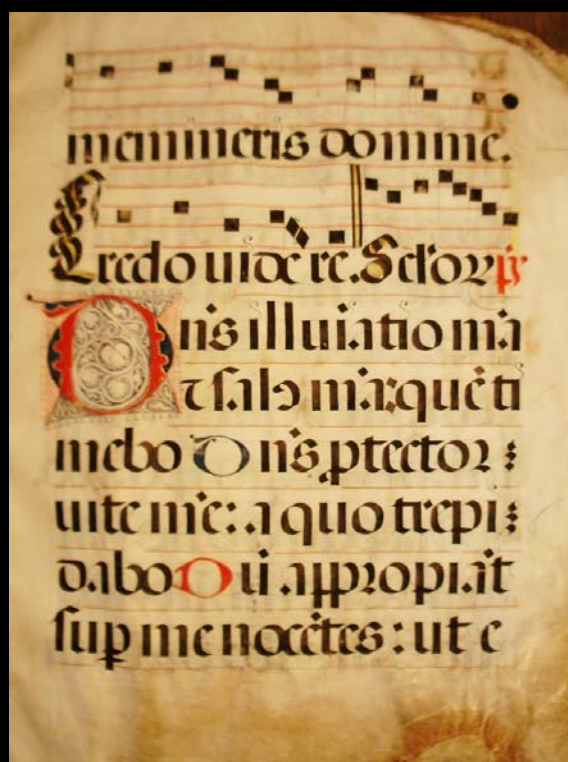 memineris domine.
Credo uidere. Sclor ps
Dn̄s illuiatio m̄a
et sal m̄a: quē ti
mebo Dn̄s ptector
uite mē: a quo trepi
dabo Qui appropiāt
sup me nocētes: ut e